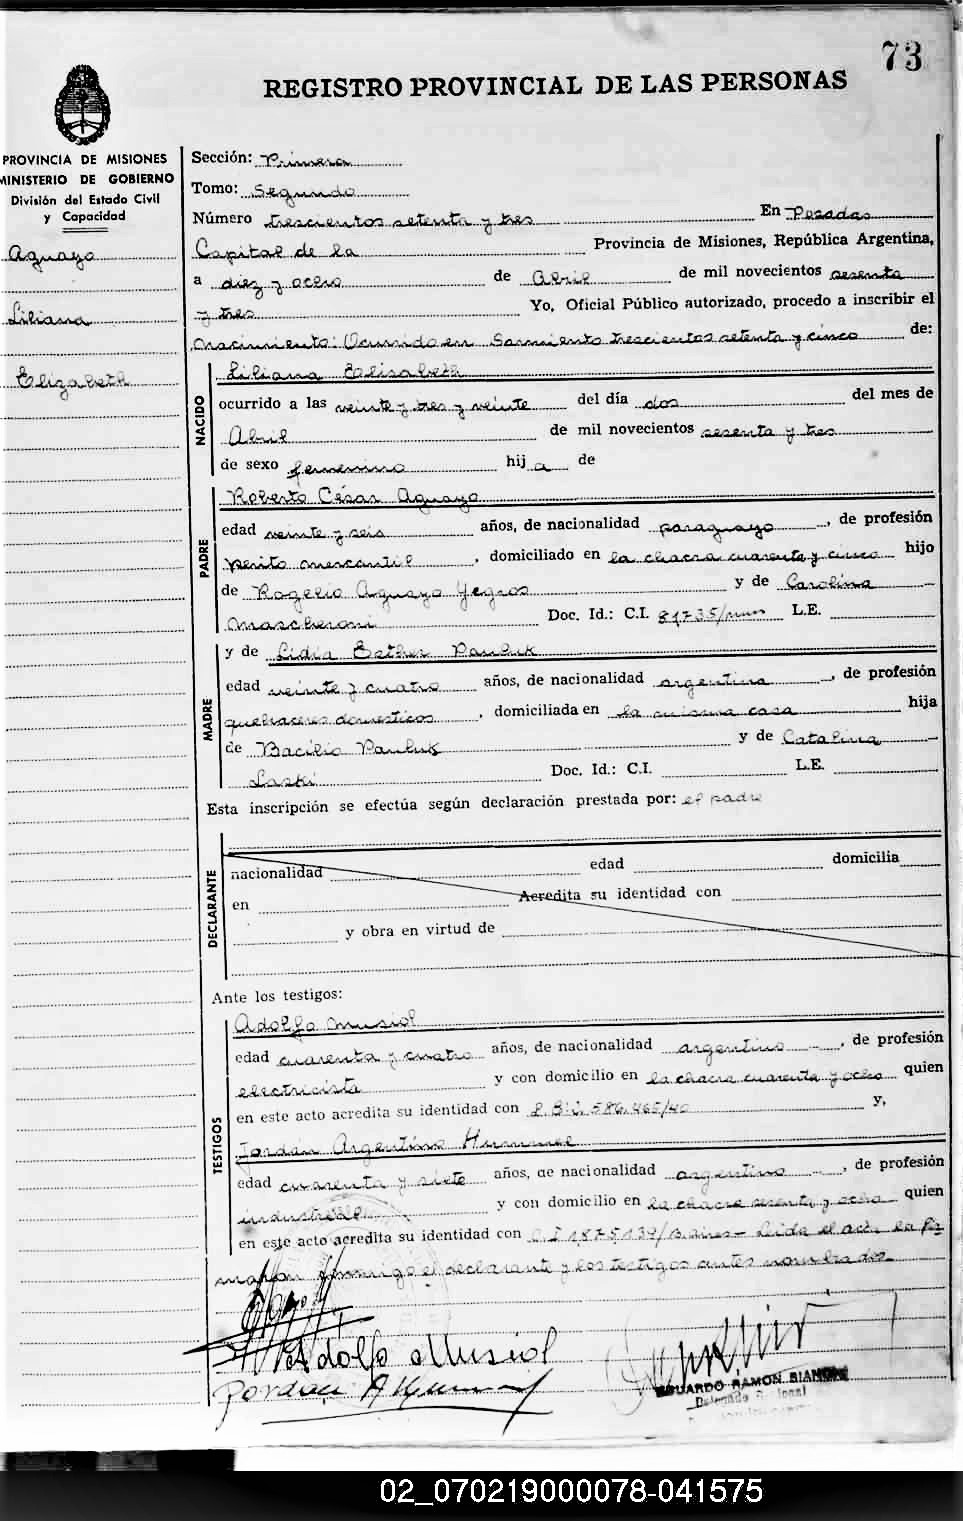 73
REGISTRO PROVINCIAL DE LAS PERSONAS
PROVINCIA DE MISIONES
MINISTERIO DE GOBIERNO
División del Estado Civil
y Capacidad
Aguayo
Liliana
Elizabeth
Sección: Primera
Tomo: Segundo
Número trescientos setenta y tres En Posadas
Capital de la Provincia de Misiones, República Argentina,
a diez y ocho de Abril de mil novecientos sesenta
y tres Yo, Oficial Público autorizado, procedo a inscribir el
nacimiento: Ocurrido en Sarmiento trescientos setenta y cinco de:
NACIDO
Liliana Elisabeth
ocurrido a las veinte y tres y veinte del día dos del mes de
Abril de mil novecientos sesenta y tres
de sexo femenino hij a de
PADRE
Roberto César Aguayo
edad veinte y seis años, de nacionalidad paraguayo, de profesión
perito mercantil, domiciliado en la chacra cuarenta y cinco hijo
de Rogelio Aguayo Yegros y de Carolina
Mascheroni Doc. Id.: C.I. 81735/ L.E.
MADRE
y de Lidia Esther Pauluk
edad veinte y cuatro años, de nacionalidad argentina, de profesión
quehaceres domesticos, domiciliada en la misma casa hija
de Bacilio Pauluk y de Catalina
Laski Doc. Id.: C.I. L.E.
Esta inscripción se efectúa según declaración prestada por: el padre
DECLARANTE
nacionalidad edad domicilia
en Acredita su identidad con
y obra en virtud de
Ante los testigos:
TESTIGOS
Adolfo Musiol
edad cuarenta y cuatro años, de nacionalidad argentino, de profesión
electricista y con domicilio en la chacra cuarenta y ocho quien
en este acto acredita su identidad con 586.465/40 y,
Jordán Argentino Hummel
edad cuarenta y siete años, de nacionalidad argentino, de profesión
industrial y con domicilio en la chacra sesenta y ocho quien
en este acto acredita su identidad con C.I 1875139/ Leida el acta la fir
maron conmigo el declarante y los testigos antes nombrados.
Adolfo Musiol
Jordan A Hummel
EDUARDO RAMON BIANCHI
02_070219000078-041575